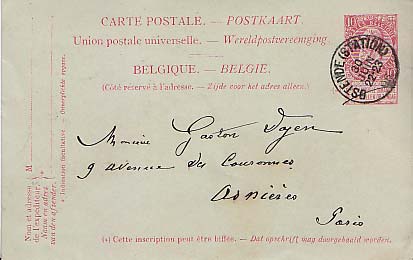 CARTE POSTALE. — POSTKAART.
Union postale universelle. — Wereldpostvereeniging
BELGIQUE. — BELGIE.
(Côté réservé à l'adresse. — Zijde voor het adres alleen.)
10 10
OSTENDE (STATION)
Monsieur Gaston Doyen
9 avenue des Couronnes
Asnières
Paris
(*) Cette inscription peut être biffée. — Dat opschrift mag doorgehaald worden.
Nom et adresse M
de l'expéditeur. (*)
Naam en adres
van den afzender.
* Indication facultative. — Onverplichte opgave.